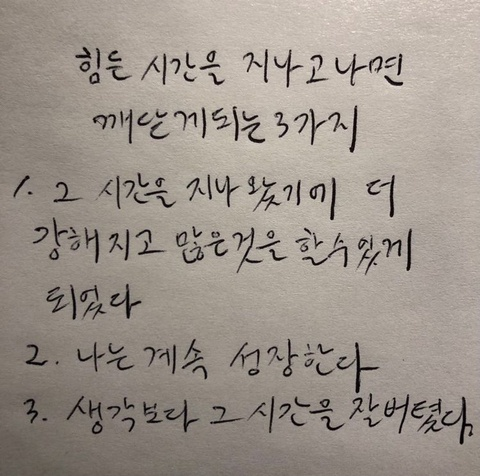 힘든 시간을 지나고나면
깨닫게되는 3가지
1. 그 시간을 지나왔기에 더
강해지고 많은것을 할수있게
되었다
2. 나는 계속 성장한다
3. 생각보다 그 시간을 잘버텼다.